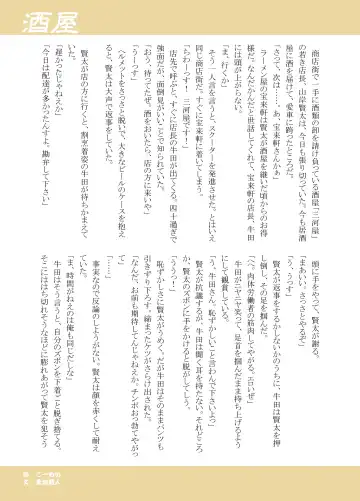 酒屋
商店街で一手に酒類の卸を請け負っている酒屋「三河屋」
の若き店長、山岸賢太は、今日も張り切っていた。今も居酒
屋に酒を届けて、愛車に跨ったところだ。
「さって、次は……、あ、宝来軒さんかぁ」
ラーメン屋の宝来軒は賢太が酒屋を継いだ頃からのお得
様だ。なんだかんだと世話してくれて、宝来軒の店長、牛田
には頭が上がらない。
「ま、行くか」
そう一人言を言うと、スクーターを発進させた。とはいえ
同じ商店街だ。すぐに宝来軒に着いてしまう。
「ちわーっす！　三河屋です！」
店先で呼ぶと、すぐに店長の牛田が出てくる。四十過ぎで
強面だが、面倒見がいいことで知られていた。
「おう、待ってたぜ。酒をおいたら、店の方に来いや」
「うーっす」
ヘルメットをさっさと脱いで、大きなビールのケースを抱え
ると、賢太は大声で返事をしていた。
賢太が店の方に行くと、割烹着姿の牛田が待ちかまえて
いた。
「遅かったじゃねえか」
「今日は配達が多かったんすよ。勘弁して下さい」
頭に手をやって、賢太が謝る。
「まあいい。さっさとやるぞ」
「う、うっす」
賢太が返事をするかしないかのうちに、牛田は賢太を押
し倒し、その足を掴んだ。
「へへ、肉体労働者の筋肉してやがる。エロいぜ」
牛田がニヤニヤ笑って、足首を掴んだまま持ち上げるよう
にして観賞している。
「う、牛田さん、恥ずかしいこと言わんで下さいよ」
賢太が抗議するが、牛田は聞く耳を持たない。それどころ
か、賢太のズボンに手をかけると脱がしてしまう。
「ううっ！」
恥ずかしさに賢太がうめく。だが牛田はそのままパンツも
引きずり下ろす。締まったケツがさらけ出された。
「なんだ、お前も期待してんじゃねえか。チンポおっ勃てやがっ
て」
「……」
事実なので反論のしようがない。賢太は顔を赤くして耐え
た。
「ま、時間がねえのは俺も同じだしな」
牛田はそう言うと、自分のズボンを下着ごと脱ぎ捨てる。
そこにははち切れそうなほどに膨れあがって賢太を犯そう